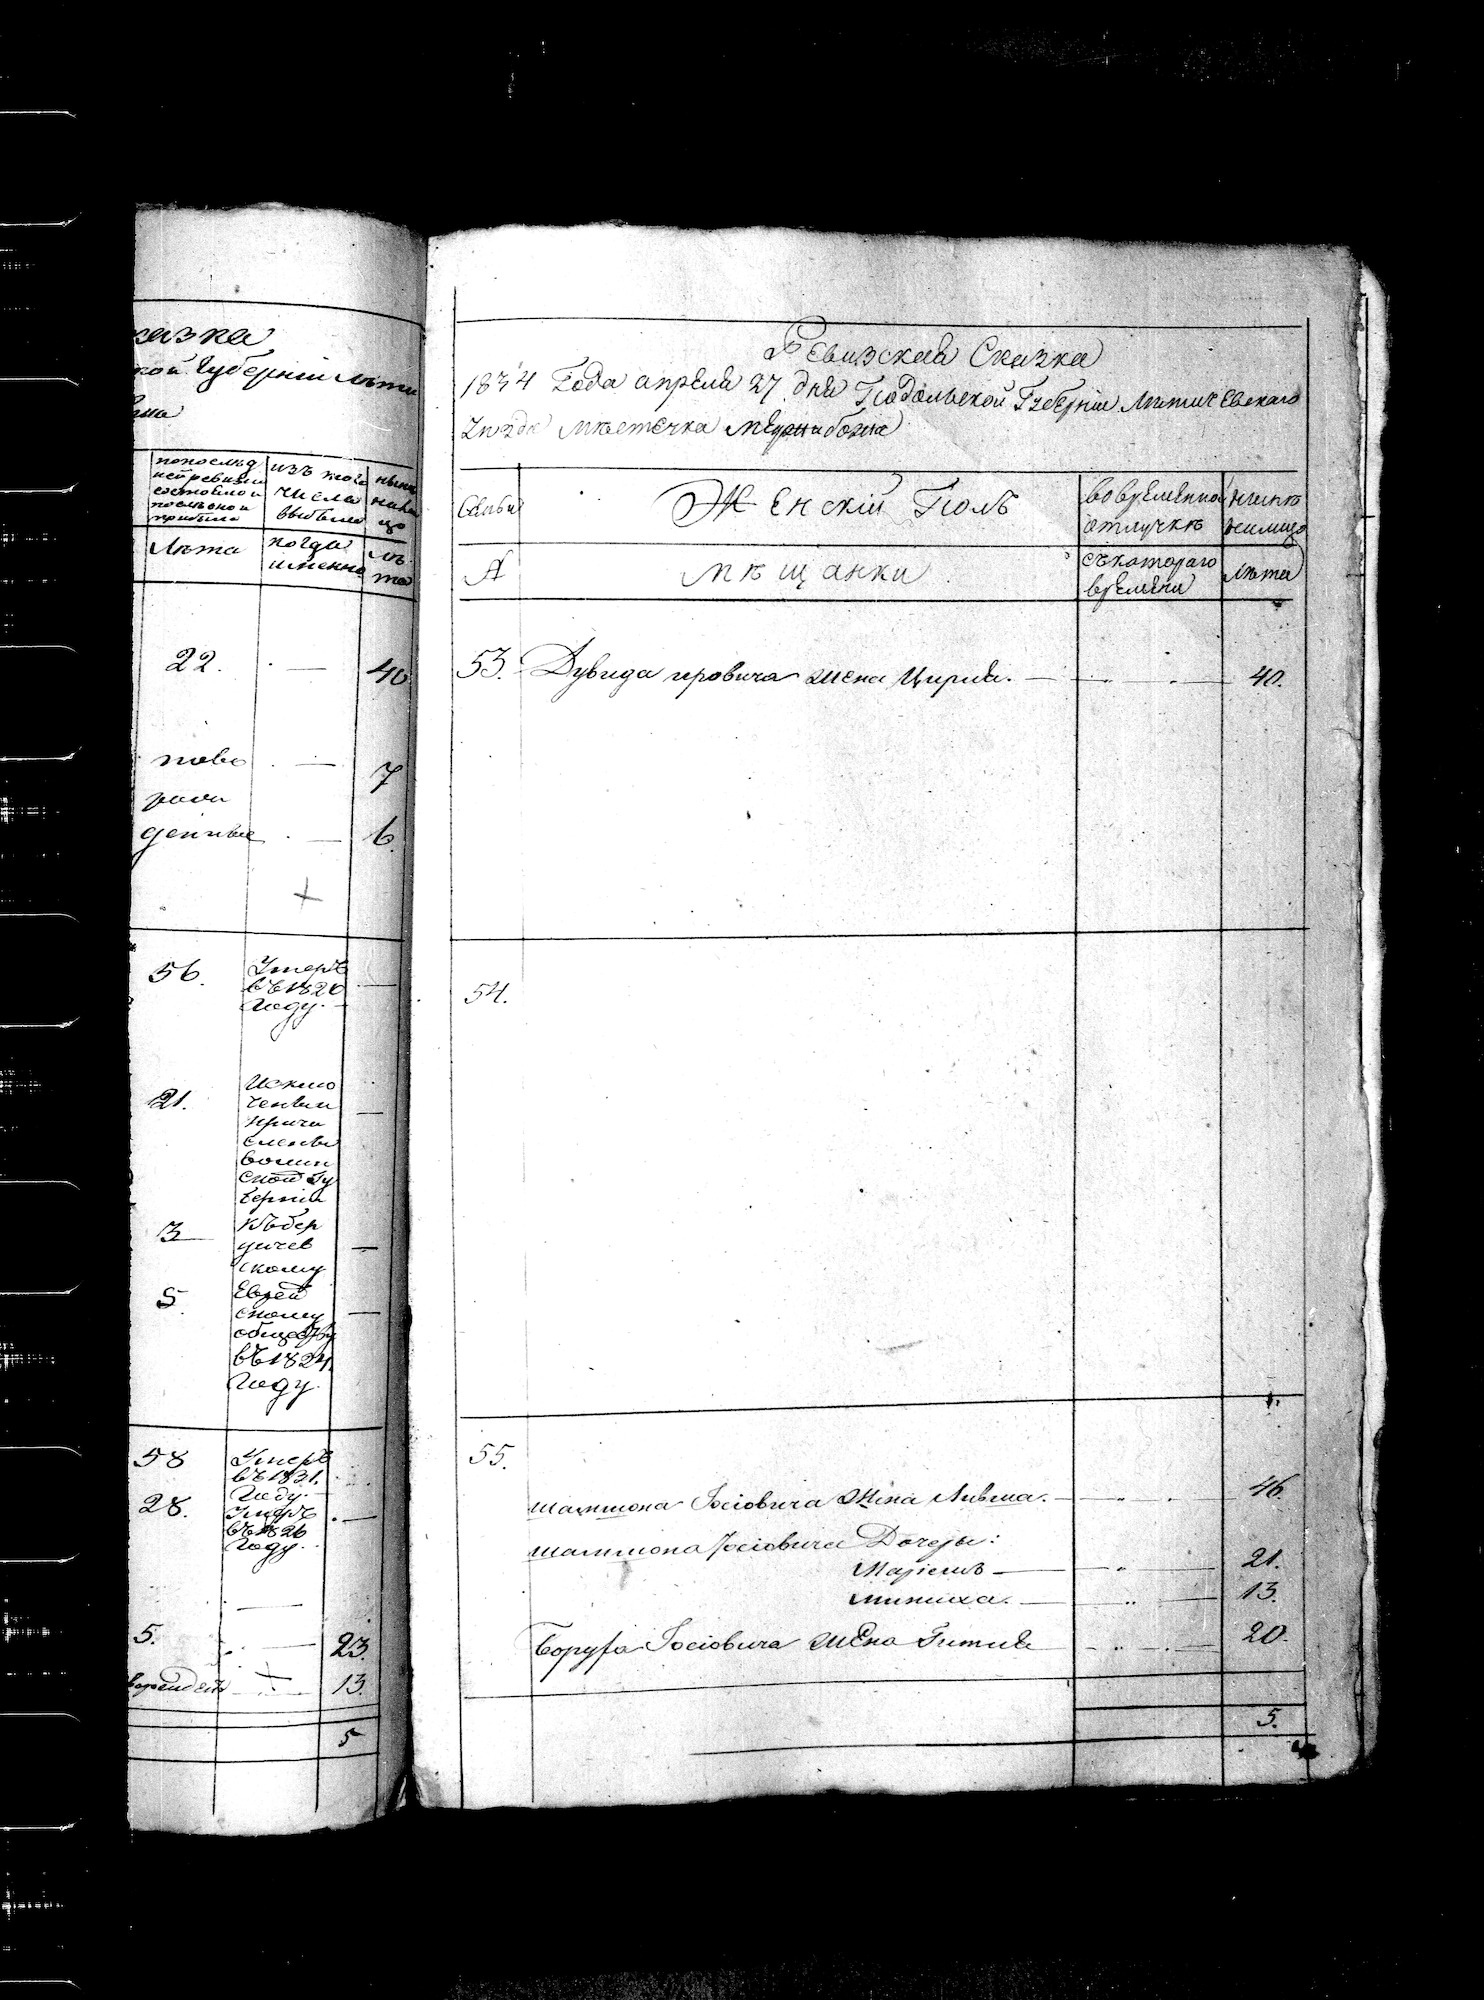 казка
кой Губерніи Лѣти
попослѣд
ней ревизіи
состояло и
послѣ оной
прибыло
изъ того
числа
выбыло
нынѣ
на ли
цо
Лѣта
когда
именно
лѣ
та
22. 40
ново 7
рож
денные 6.
56. Умеръ
въ 1826
году.
21. Исклю
ченны
причи
слены
волын
ской Гу
берніи
3 къ бер
дичев
скому
5. Еврей
скому
обществу
въ 1824.
году.
58 Умеръ
въ 1831.
году.
28. Умеръ
въ 1826
году.
5. 23.
13.
5
Ревизская Сказка
1834 Года апреля 27 дня Подольской Губерніи Литичевскаго
Уѣзда мѣстечка Меджибожа
Семьи Женскій Полъ во временной отлучкѣ нынѣ налицо
А мѣщанки съ котораго времени Лѣта
53. Дувида ировича жена Цирля. 40.
54.
55.
шапшона Іосіовича Жена Ливша. 46.
шапшона Іосіовича Дочеры:
Маріемъ 21.
миниха. 13.
Боруха Іосіовича жена Гитля 20.
5.